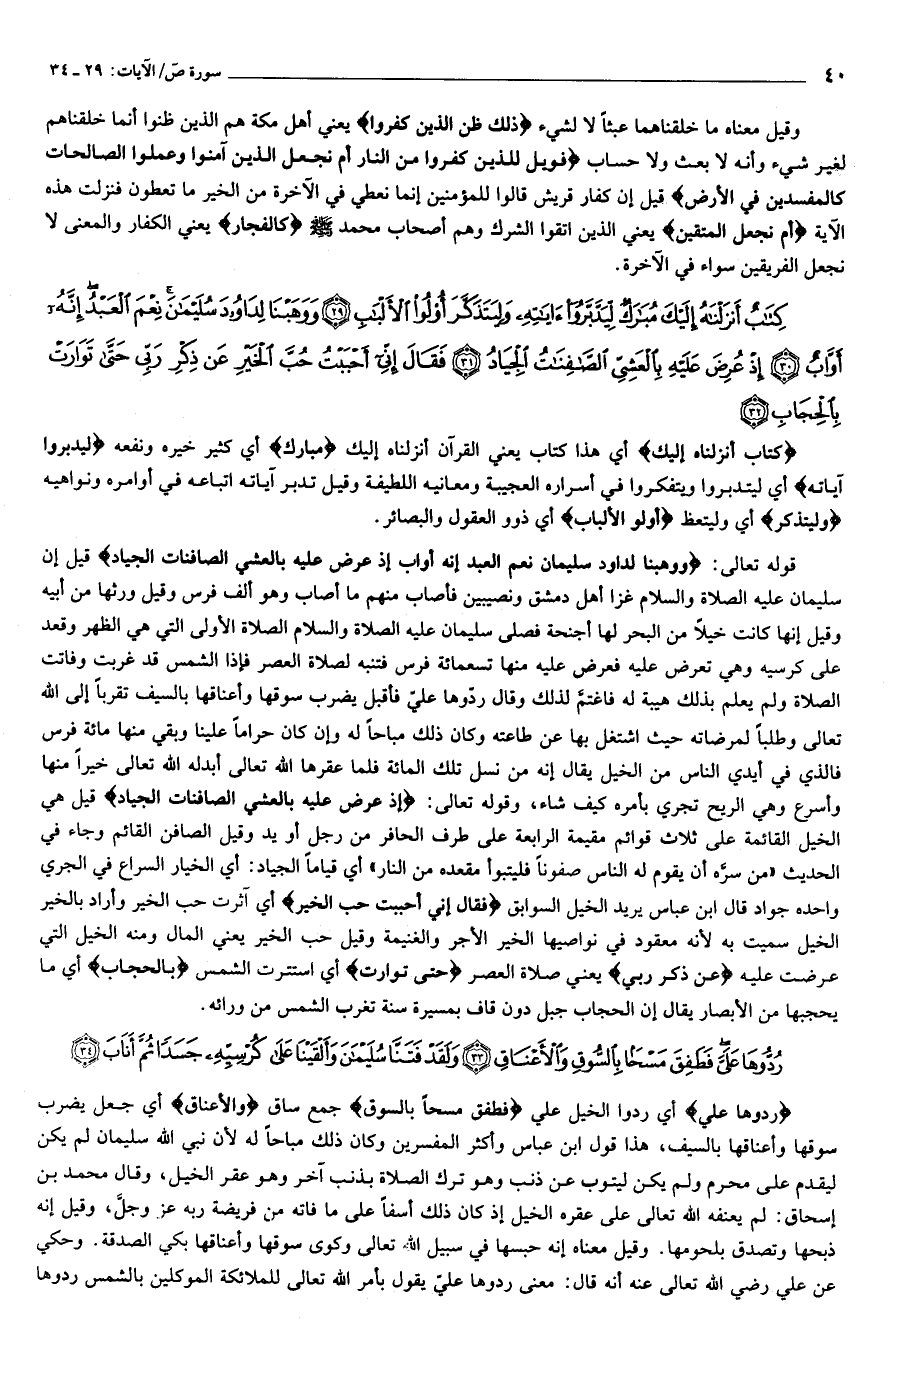 ٤٠ سورة صۤ/ الآيات: ٢٩ ـ ٣٤
وقيل معناه ما خلقناهما عبثاً لا لشيء ﴿ذلك ظن الذين كفروا﴾ يعني أهل مكة هم الذين ظنوا أنما خلقناهم
لغير شيء وأنه لا بعث ولا حساب ﴿فويل للذين كفروا من النار أم نجعل الذين آمنوا وعملوا الصالحات
كالمفسدين في الأرض﴾ قيل إن كفار قريش قالوا للمؤمنين إنما نعطي في الآخرة من الخير ما تعطون فنزلت هذه
الآية ﴿أم نجعل المتقين﴾ يعني الذين اتقوا الشرك وهم أصحاب محمد ﷺ ﴿كالفجار﴾ يعني الكفار والمعنى لا
نجعل الفريقين سواء في الآخرة.
كِتَٰبٌ أَنزَلْنَٰهُ إِلَيْكَ مُبَٰرَكٌ لِّيَدَّبَّرُوٓا۟ ءَايَٰتِهِۦ وَلِيَتَذَكَّرَ أُو۟لُوا۟ ٱلْأَلْبَٰبِ ﴿٢٩﴾ وَوَهَبْنَا لِدَاوُۥدَ سُلَيْمَٰنَ ۚ نِعْمَ ٱلْعَبْدُ ۖ إِنَّهُۥٓ
أَوَّابٌ ﴿٣٠﴾ إِذْ عُرِضَ عَلَيْهِ بِٱلْعَشِىِّ ٱلصَّٰفِنَٰتُ ٱلْجِيَادُ ﴿٣١﴾ فَقَالَ إِنِّىٓ أَحْبَبْتُ حُبَّ ٱلْخَيْرِ عَن ذِكْرِ رَبِّى حَتَّىٰ تَوَارَتْ
بِٱلْحِجَابِ ﴿٣٢﴾
﴿كتاب أنزلناه إليك﴾ أي هذا كتاب يعني القرآن أنزلناه إليك ﴿مبارك﴾ أي كثير خيره ونفعه ﴿ليدبروا
آياته﴾ أي ليتدبروا ويتفكروا في أسراره العجيبة ومعانيه اللطيفة وقيل تدبر آياته اتباعه في أوامره ونواهيه
﴿وليتذكر﴾ أي وليتعظ ﴿أولو الألباب﴾ أي ذوو العقول والبصائر.
قوله تعالى: ﴿ووهبنا لداود سليمان نعم العبد إنه أواب إذ عرض عليه بالعشي الصافنات الجياد﴾ قيل إن
سليمان عليه الصلاة والسلام غزا أهل دمشق ونصيبين فأصاب منهم ما أصاب وهو ألف فرس وقيل ورثها من أبيه
وقيل إنها كانت خيلاً من البحر لها أجنحة فصلى سليمان عليه الصلاة والسلام الصلاة الأولى التي هي الظهر وقعد
على كرسيه وهي تعرض عليه فعرض عليه منها تسعمائة فرس فتنبه لصلاة العصر فإذا الشمس قد غربت وفاتت
الصلاة ولم يعلم بذلك هيبة له فاغتمَّ لذلك وقال ردّوها عليّ فأقبل يضرب سوقها وأعناقها بالسيف تقرباً إلى الله
تعالى وطلباً لمرضاته حيث اشتغل بها عن طاعته وكان ذلك مباحاً له وإن كان حراماً علينا وبقي منها مائة فرس
فالذي في أيدي الناس من الخيل يقال إنه من نسل تلك المائة فلما عقرها الله تعالى أبدله الله تعالى خيراً منها
وأسرع وهي الريح تجري بأمره كيف شاء، وقوله تعالى: ﴿إذ عرض عليه بالعشي الصافنات الجياد﴾ قيل هي
الخيل القائمة على ثلاث قوائم مقيمة الرابعة على طرف الحافر من رجل أو يد وقيل الصافن القائم وجاء في
الحديث «من سرَّه أن يقوم له الناس صفوناً فليتبوأ مقعده من النار» أي قياماً الجياد: أي الخيار السراع في الجري
واحده جواد قال ابن عباس يريد الخيل السوابق ﴿فقال إني أحببت حب الخير﴾ أي آثرت حب الخير وأراد بالخير
الخيل سميت به لأنه معقود في نواصيها الخير الأجر والغنيمة وقيل حب الخير يعني المال ومنه الخيل التي
عرضت عليه ﴿عن ذكر ربي﴾ يعني صلاة العصر ﴿حتى توارت﴾ أي استترت الشمس ﴿بالحجاب﴾ أي ما
يحجبها من الأبصار يقال إن الحجاب جبل دون قاف بمسيرة سنة تغرب الشمس من ورائه.
رُدُّوهَا عَلَىَّ ۖ فَطَفِقَ مَسْحًۢا بِٱلسُّوقِ وَٱلْأَعْنَاقِ ﴿٣٣﴾ وَلَقَدْ فَتَنَّا سُلَيْمَٰنَ وَأَلْقَيْنَا عَلَىٰ كُرْسِيِّهِۦ جَسَدًا ثُمَّ أَنَابَ ﴿٣٤﴾
﴿ردوها علي﴾ أي ردوا الخيل علي ﴿فطفق مسحاً بالسوق﴾ جمع ساق ﴿والأعناق﴾ أي جعل يضرب
سوقها وأعناقها بالسيف، هذا قول ابن عباس وأكثر المفسرين وكان ذلك مباحاً له لأن نبي الله سليمان لم يكن
ليقدم على محرم ولم يكن ليتوب عن ذنب وهو ترك الصلاة بذنب آخر وهو عقر الخيل، وقال محمد بن
إسحاق: لم يعنفه الله تعالى على عقره الخيل إذ كان ذلك أسفاً على ما فاته من فريضة ربه عز وجلَّ، وقيل إنه
ذبحها وتصدق بلحومها. وقيل معناه إنه حبسها في سبيل الله تعالى وكوى سوقها وأعناقها بكي الصدقة. وحكي
عن علي رضي الله تعالى عنه أنه قال: معنى ردوها عليّ يقول بأمر الله تعالى للملائكة الموكلين بالشمس ردوها